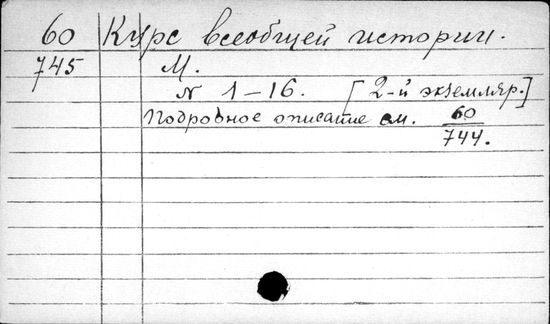 60 Курс всеобщей истории.
745 М.
N 1-16. [2-й экземпляр.]
Подробное описание см. 60
744.